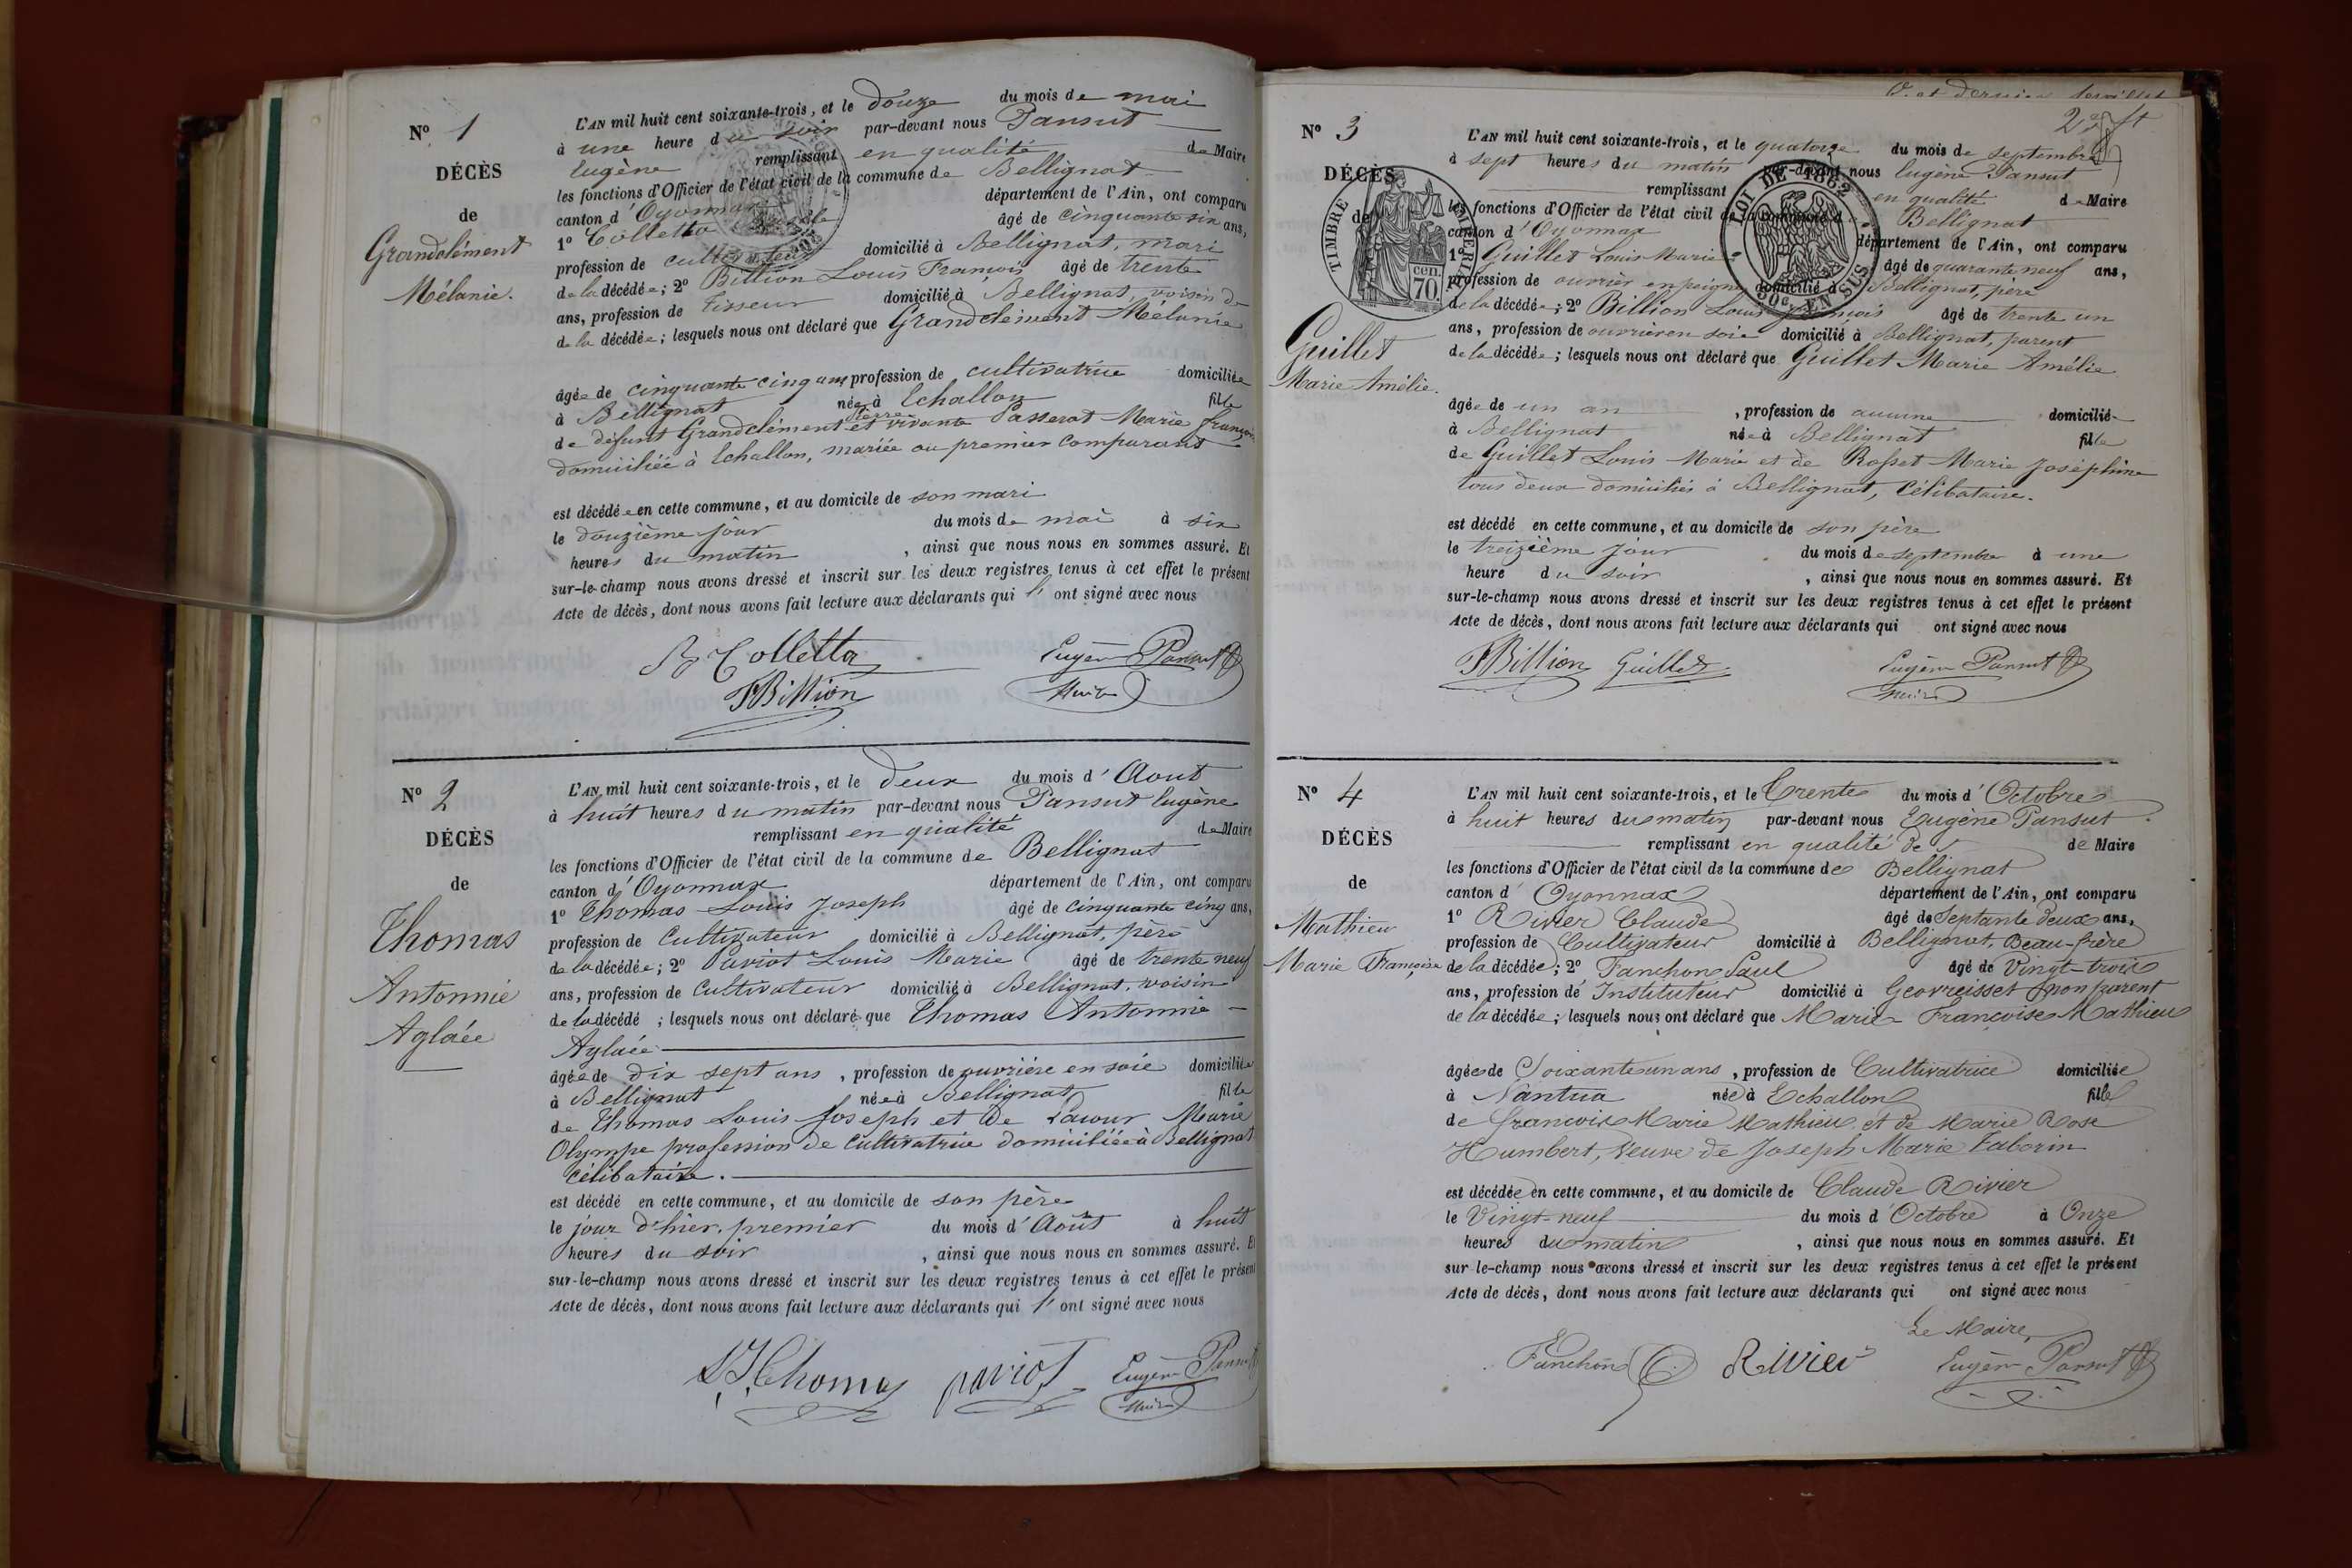 Nº 1
DÉCÈS
de
Grandclément
Mélanie.
L'AN mil huit cent soixante-trois, et le douze du mois de mai
à une heure du soir par-devant nous Pansut
Eugène remplissant en qualité de Maire
les fonctions d'Officier de l'état civil de la commune de Bellignat
canton d'Oyonnax département de l'Ain, ont comparu
1º Colletta âgé de cinquante six ans,
profession de cultivateur domicilié à Bellignat, mari
de la décédée; 2º Billion Louis François âgé de trente
ans, profession de tisseur domicilié à Bellignat, voisin de
de la décédée; lesquels nous ont déclaré que Grandclément Mélanie
âgée de cinquante cinq ans profession de cultivatrice domiciliée
à Bellignat née à Echallon fille
de défunt Grandclément Pierre et vivante Passerat Marie Françoise
domiciliée à Echallon, mariée au premier comparant
est décédée en cette commune, et au domicile de son mari
le douzième jour du mois de mai à six
heures du matin, ainsi que nous nous en sommes assuré. Et
sur-le-champ nous avons dressé et inscrit sur les deux registres tenus à cet effet le présent
Acte de décès, dont nous avons fait lecture aux déclarants qui l' ont signé avec nous
Colletta Eugène Pansut
FBillion Maire
Nº 2
DÉCÈS
de
Thomas
Antonnie
Aglaée
L'AN mil huit cent soixante-trois, et le deux du mois d'Aout
à huit heures du matin par-devant nous Pansut Eugène
remplissant en qualité de Maire
les fonctions d'Officier de l'état civil de la commune de Bellignat
canton d'Oyonnax département de l'Ain, ont comparu
1º Thomas Louis Joseph âgé de cinquante cinq ans,
profession de Cultivateur domicilié à Bellignat, père
de la décédée; 2º Paviot Louis Marie âgé de trente neuf
ans, profession de Cultivateur domicilié à Bellignat, voisin
de la décédé ; lesquels nous ont déclaré que Thomas Antonnie
Aglaée
âgée de dix sept ans, profession de ouvrière en soie domiciliée
à Bellignat née à Bellignat fille
de Thomas Louis Joseph et de Lacour Marie
Olympe profession de Cultivatrice domiciliée à Bellignat
célibataire.
est décédé en cette commune, et au domicile de son père
le jour d'hier, premier du mois d'Août à huit
heures du soir, ainsi que nous nous en sommes assuré. Et
sur-le-champ nous avons dressé et inscrit sur les deux registres tenus à cet effet le présent
Acte de décès, dont nous avons fait lecture aux déclarants qui l' ont signé avec nous
LJ Thomas paviot Eugène Pansut
Maire
et dernier feuillet
Nº 3
DÉCÈS
de
TIMBRE IMPERIAL
70 cen.
LOI DE 1862
50c. EN SUS
Guillet
Marie Amélie.
L'AN mil huit cent soixante-trois, et le quatorze du mois de septembre
à sept heures du matin par-devant nous Eugène Pansut
remplissant en qualité de Maire
les fonctions d'Officier de l'état civil de la commune de Bellignat
canton d'Oyonnax département de l'Ain, ont comparu
1º Guillet Louis Marie âgé de quarante neuf ans,
profession de ouvrier en peigne domicilié à Bellignat, père
de la décédée; 2º Billion Louis François âgé de trente un
ans, profession de ouvrier en soie domicilié à Bellignat, parent
de la décédée; lesquels nous ont déclaré que Guillet Marie Amélie
âgée de un an, profession de aucune domicilié
à Bellignat née à Bellignat fille
de Guillet Louis Marie et de Rosset Marie Joséphine
tous deux domiciliés à Bellignat, Célibataire.
est décédé en cette commune, et au domicile de son père
le treizième jour du mois de septembre à une
heure du soir, ainsi que nous nous en sommes assuré. Et
sur-le-champ nous avons dressé et inscrit sur les deux registres tenus à cet effet le présent
Acte de décès, dont nous avons fait lecture aux déclarants qui ont signé avec nous
FBillion Guillet Eugène Pansut
Maire
Nº 4
DÉCÈS
de
Mathieu
Marie Françoise
L'AN mil huit cent soixante-trois, et le Trente du mois d'Octobre
à huit heures du matin par-devant nous Eugène Pansut
remplissant en qualité de de Maire
les fonctions d'Officier de l'état civil de la commune de Bellignat
canton d'Oyonnax département de l'Ain, ont comparu
1º Rivier Claude âgé de Septante deux ans,
profession de Cultivateur domicilié à Bellignat, Beau-frère
de la décédée; 2º Fanchon Paul âgé de Vingt-trois
ans, profession de Instituteur domicilié à Geovreisset, non parent
de la décédée; lesquels nous ont déclaré que Marie Françoise Mathieu
âgée de Soixante un ans, profession de Cultivatrice domiciliée
à Nantua née à Echallon fille
de François Marie Mathieu et de Marie Rose
Humbert, veuve de Joseph Marie Taborin
est décédée en cette commune, et au domicile de Claude Rivier
le Vingt-neuf du mois d'Octobre à Onze
heures du matin, ainsi que nous nous en sommes assuré. Et
sur-le-champ nous avons dressé et inscrit sur les deux registres tenus à cet effet le présent
Acte de décès, dont nous avons fait lecture aux déclarants qui ont signé avec nous
Le Maire,
Fanchon Rivier Eugène Pansut